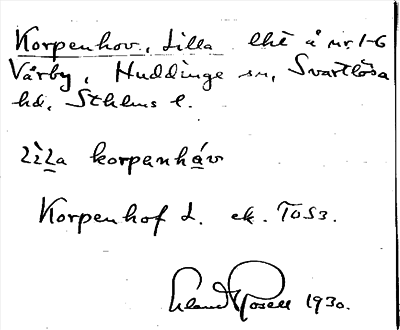 Korpenhov, Lilla lht å nr. 1-6
Vårby, Huddinge sn, Svartlösa
hd, Sthlms l.
lìla korpenháv
Korpenhof L. ek. TOS3.
Erland Rosell 1930.